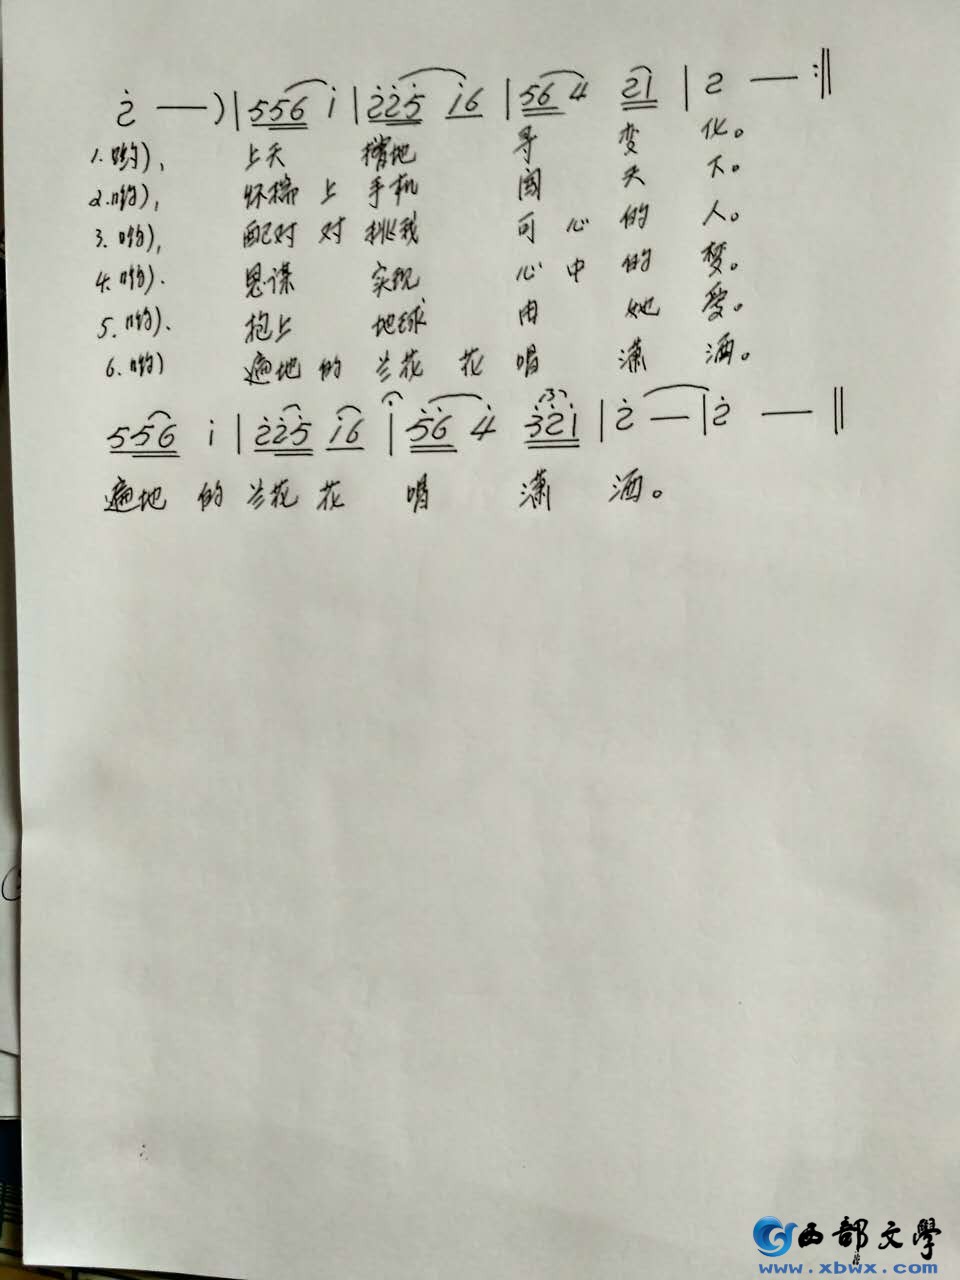 2̇ — ) | 5 5 6 i | 2̇ 2̇ 5̇ i 6 | 5 6 4 2 1 | 2 — :‖
1.哟), 上天 地 寻 变 化。
2.哟), 怀揣 上 手机 闯 天 下。
3.哟), 配对 对 挑我 可 心 的 人。
4.哟). 思谋 实现 心 中 的 梦。
5.哟). 抱上 地球 由 她 爱。
6.哟) 遍地 的 兰花 花 唱 潇 洒。
5 5 6 i | 2̇ 2̇ 5̇ i 6 | 5̇ 6̇ 4̇ 3̇ 2̇ i | 2̇ — | 2̇ — ‖
遍地 的 兰花 花 唱 潇 洒。
西部文學
www.xbwx.com